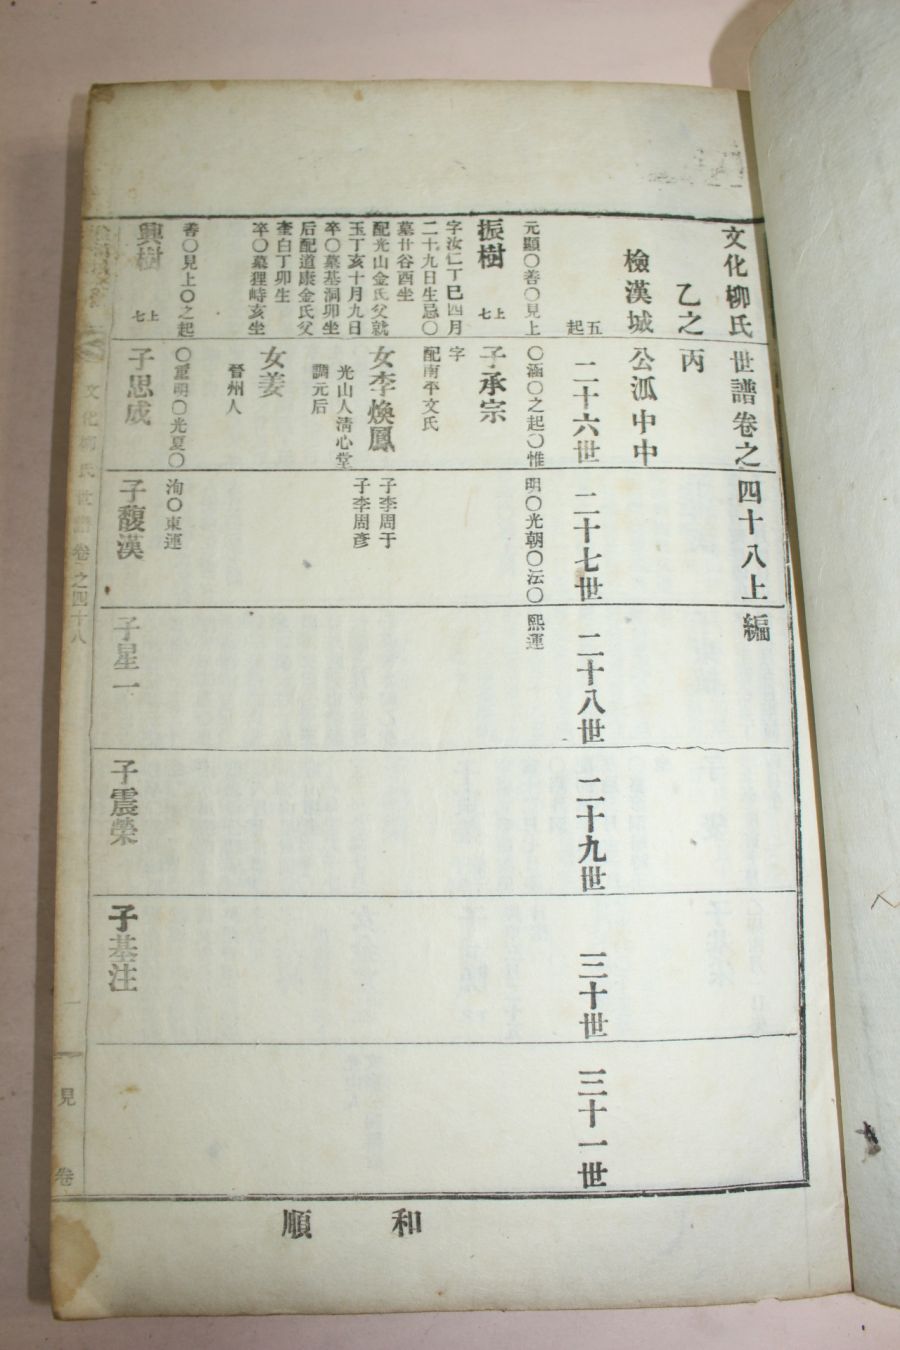 文化柳氏世譜卷之四十八上編
乙之丙
檢漢城公派中中
五起
二十六世
二十七世
二十八世
二十九世
三十世
三十一世
元顯〇善〇見上
〇涵〇之起〇惟
明〇光朝〇沄〇
熙運
振樹
上七
字汝仁丁巳四月
二十九日生忌〇
墓廿谷酉坐
配光山金氏父就
玉丁亥十月九日
卒〇墓基洞卯坐
后配道康金氏父
奎白丁卯生
卒〇墓狸峙亥坐
子承宗
字
配南平文氏
女李煥鳳
光山人淸心堂
調元后
子李周于
子李周彦
女姜
晉州人
善〇見上〇之起
〇重明〇光夏〇
洵〇東運
興樹
上七
子思成
子馥漢
子星一
子震榮
子基注
文化柳氏世譜 卷之四十八
一
見
卷
和順